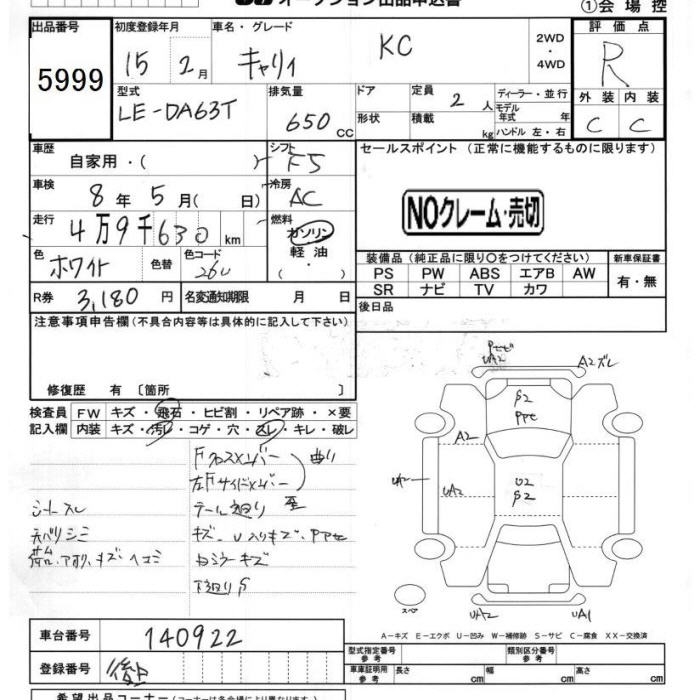 オークション出品申込書
①会場控
出品番号 初度登録年月 車名・グレード 評価点
5999 15年 2月 キャリイ KC 2WD・4WD R
型式 排気量 ドア 定員 ディーラー・並行 外装 内装
LE-DA63T 650CC 2人 モデル年式 年 C C
形状 積載 kg ハンドル 左・右
車歴 シフト セールスポイント(正常に機能するものに限ります)
自家用・( ) F5
車検 冷房
8年 5月( 日) AC NOクレーム・売切
走行 燃料
4万9千630km ガソリン
軽油
・( )
色 色替 色コード 装備品(純正品に限り○をつけてください) 新車保証書
ホワイト 26U PS PW ABS エアB AW 有・無
SR ナビ TV カワ
R券 3,180円 名変通知期限 月 日 後日品
注意事項申告欄(不具合内容等は具体的に記入して下さい)
修復歴 有〔箇所 〕
検査員 FW キズ・飛石・ヒビ割・リペア跡・×要
記入欄 内装 キズ・汚レ・コゲ・穴・スレ・キレ・破レ
Fクロスメンバー
左Fサイドメンバー 曲り
シートスレ テール廻り
天バリシミ キズ、U入りキズ、PPセ
荷台、アオリ、キズヘコミ
下廻りS
UA2 A2ズレ
PPセ
A2
UA2 U2
UA2 UA1
スペ
A-キズ E-エクボ U-凹み W-補修跡 S-サビ C-腐食 XX-交換済
車台番号 140922 型式指定番号 参考 類別区分番号 参考
登録番号 車庫証明用 参考 長さ cm 幅 cm 高さ cm
希望出品コーナー(コーナーは各会場により異なります)